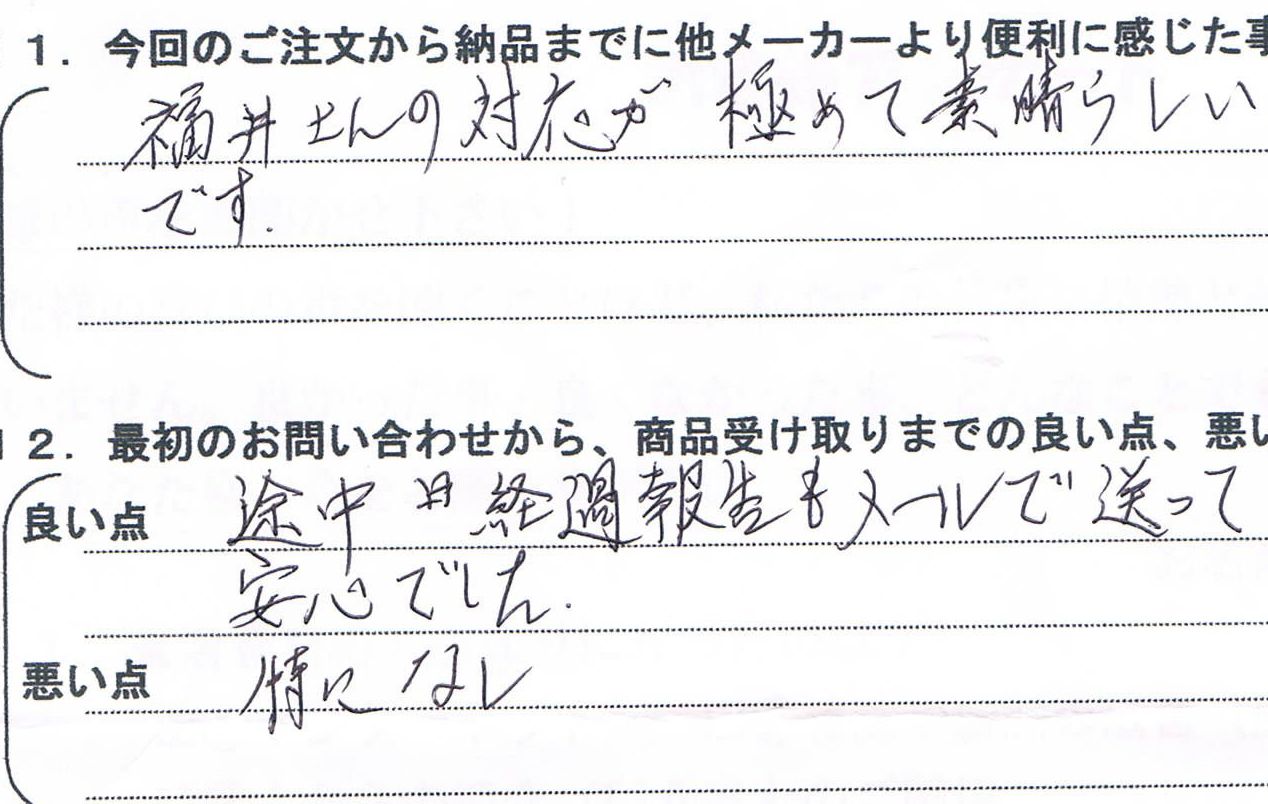 １．今回のご注文から納品までに他メーカーより便利に感じた事
福井さんの対応が極めて素晴らしい
です.
１２．最初のお問い合わせから、商品受け取りまでの良い点、悪い
良い点 途中 経過報告もメールで送って
安心でした.
悪い点 特になし